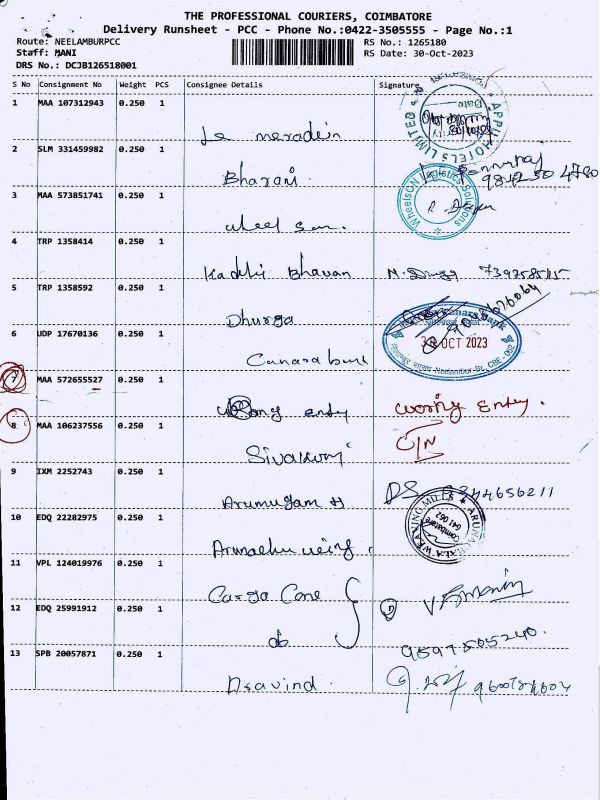 THE PROFESSIONAL COURIERS, COIMBATORE
Delivery Runsheet - PCC - Phone No.:0422-3505555 - Page No.:1
Route: NEELAMBURPCC RS No.: 1265180
Staff: MANI RS Date: 30-Oct-2023
DRS No.: DCJB126518001
S No Consignment No Weight PCS Consignee Details Signature
1 MAA 107312943 0.250 1
APPU HOTELS LIMITED
Le meradein
2 SLM 331459982 0.250 1
Bharani 98423 04780
3 MAA 573851741 0.250 1
WheelsON Logistics Solutions
wheel son.
4 TRP 1358414 0.250 1
Kadhi Bhavan
5 TRP 1358592 0.250 1
Dhurga
6 UDP 17670136 0.250 1
Canara Bank
30 OCT 2023
Neelambur Br. CBE-062
Canara bank
7 MAA 572655527 0.250 1
wrong entry worng Entry.
8 MAA 106237556 0.250 1
Sivakumj C/N
9 IXM 2252743 0.250 1
Arumugam
10 EDQ 22282975 0.250 1
WEAVING MILLS
Coimbatore
641 062
11 VPL 124019976 0.250 1
Cargo Care
12 EDQ 25991912 0.250 1
do 9597505240.
13 SPB 20057871 0.250 1
Aravind.